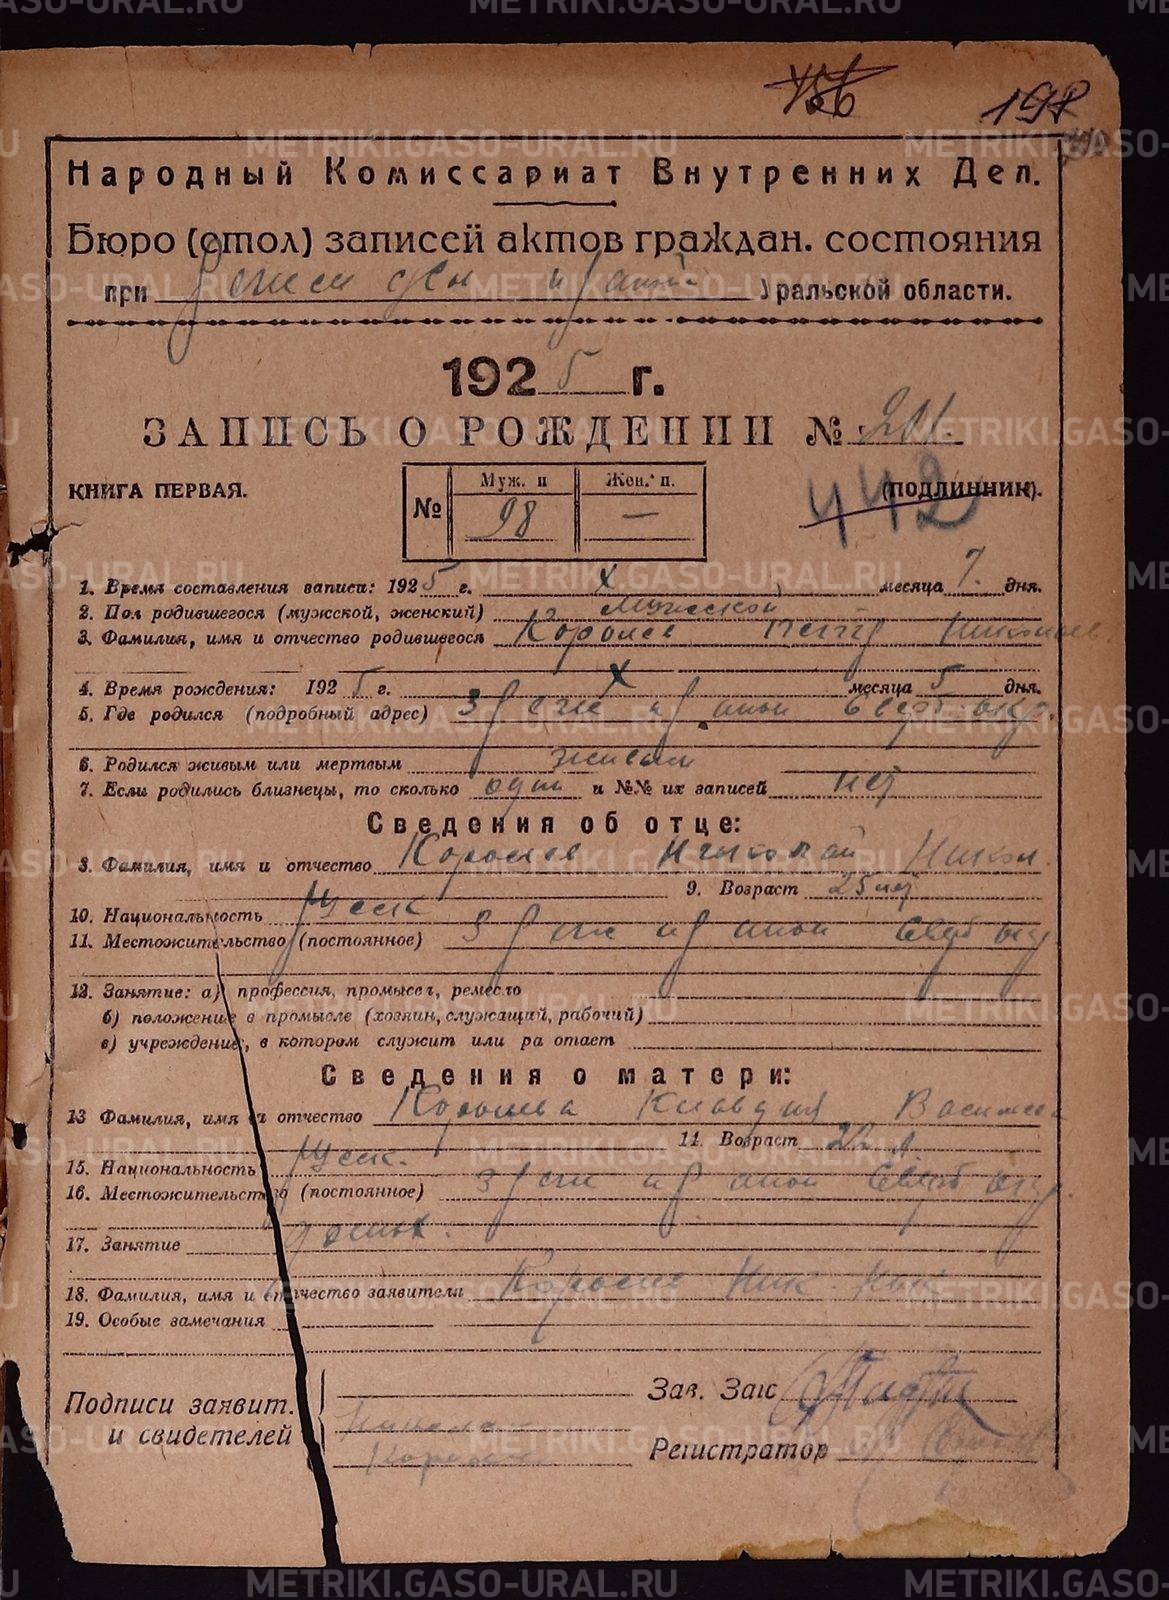 156
198
Народный Комиссариат Внутренних Дел.
Бюро (стол) записей актов граждан. состояния
при Уральской области.
1925 г.
ЗАПИСЬ О РОЖДЕНИИ № 201.
КНИГА ПЕРВАЯ. (ПОДЛИННИК).
442
№ Муж. п Жен. п.
98 —
1. Время составления записи: 1925 г. X месяца 7. дня.
2. Пол родившегося (мужской, женский) Мужской
3. Фамилия, имя и отчество родившегося Королев Петр Николаев
4. Время рождения: 1925 г. X месяца 5 дня.
5. Где родился (подробный адрес) Свердл окр.
6. Родился живым или мертвым живым
7. Если родились близнецы, то сколько один и №№ их записей нет
Сведения об отце:
8. Фамилия, имя и отчество Королев Николай Никол.
9. Возраст 25 лет
10. Национальность Русск
11. Местожительство (постоянное)
12. Занятие: а) профессия, промысел, ремесло
б) положение в промысле (хозяин, служащий, рабочий)
в) учреждение, в котором служит или работает
Сведения о матери:
13 Фамилия, имя и отчество Королева Клавдия Васильев
14. Возраст 22 л.
15. Национальность Русск.
16. Местожительство (постоянное)
17. Занятие домох.
18. Фамилия, имя и отчество заявителя Королев Ник. Ник
19. Особые замечания
Подписи заявит. и свидетелей
Николай
Королев
Зав. Загс
Регистратор
METRIKI.GASO-URAL.RU